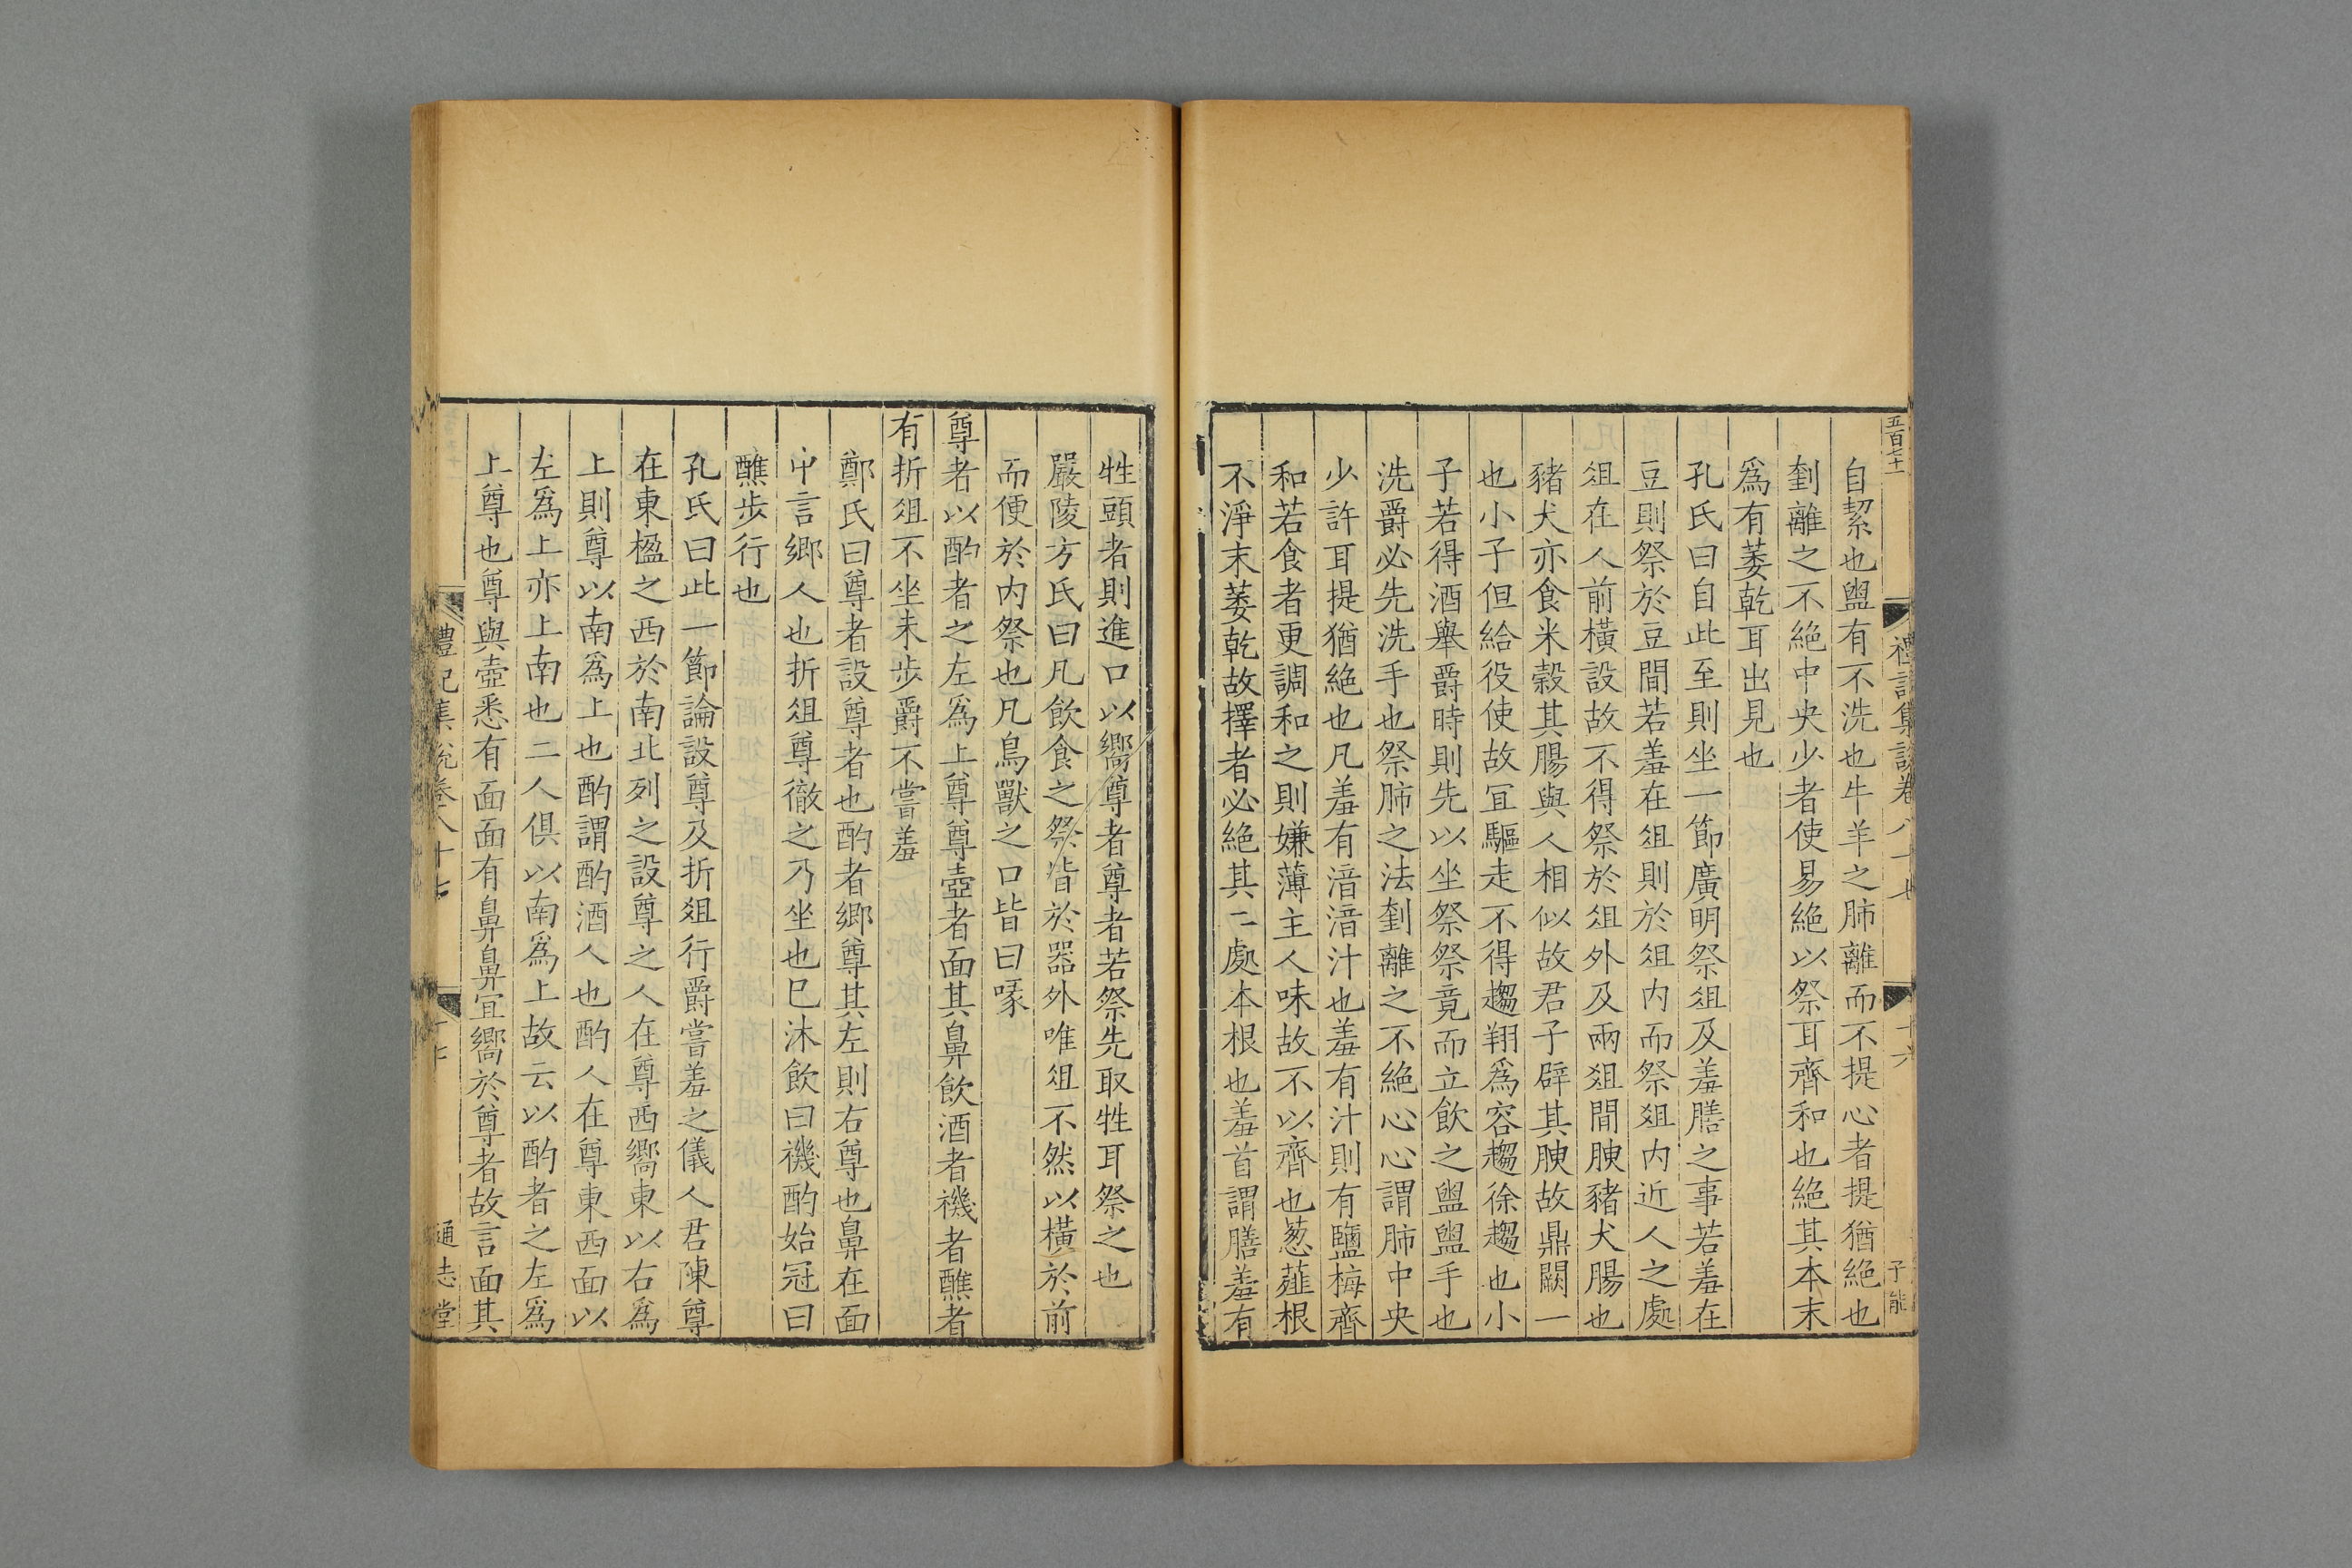 五百七十一
禮記集說卷八十七
十六
子能
自絜也盥有不洗也牛羊之肺離而不提心者提猶絕也
刲離之不絕中央少者使易絕以祭耳齊和也絕其本末
爲有萎乾耳出見也
孔氏曰自此至則坐一節廣明祭俎及羞膳之事若羞在
豆則祭於豆間若羞在俎則於俎内而祭俎内近人之處
俎在人前橫設故不得祭於俎外及兩俎間腴豬犬腸也
豬犬亦食米穀其腸與人相似故君子辟其腴故鼎闕一
也小子但給役使故宜驅走不得趨翔爲容趨徐趨也小
子若得酒舉爵時則先以坐祭祭竟而立飲之盥盥手也
洗爵必先洗手也祭肺之法刲離之不絕心心謂肺中央
少許耳提猶絕也凡羞有湆湆汁也羞有汁則有鹽梅齊
和若食者更調和之則嫌薄主人味故不以齊也葱薤根
不淨末萎乾故擇者必絕其二處本根也羞首謂膳羞有
牲頭者則進口以嚮尊者尊者若祭先取牲耳祭之也
嚴陵方氏曰凡飲食之祭皆於器外唯俎不然以橫於前
而便於内祭也凡鳥獸之口皆曰喙
尊者以酌者之左爲上尊尊壺者面其鼻飲酒者禨者醮者
有折俎不坐未步爵不嘗羞
鄭氏曰尊者設尊者也酌者鄉尊其左則右尊也鼻在面
中言鄉人也折俎尊徹之乃坐也已沐飲曰禨酌始冠曰
醮步行也
孔氏曰此一節論設尊及折俎行爵嘗羞之儀人君陳尊
在東楹之西於南北列之設尊之人在尊西嚮東以右爲
上則尊以南爲上也酌謂酌酒人也酌人在尊東西面以
左爲上亦上南也二人俱以南爲上故云以酌者之左爲
上尊也尊與壺悉有面面有鼻鼻宜嚮於尊者故言面其
禮記集說卷八十七
十七
通志堂